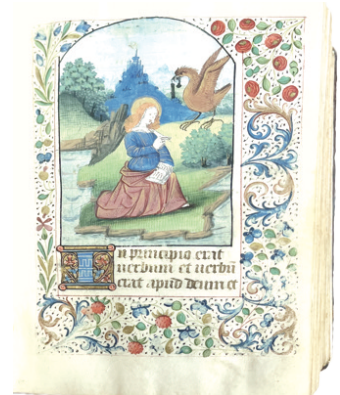 In principio erat
uerbum et uerbū
erat apud deum et